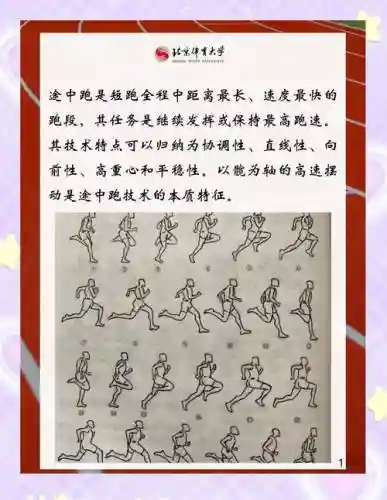 北京体育大学
途中跑是短跑全程中距离最长、速度最快的
跑段，其任务是继续发挥或保持最高跑速。
其技术特点可以归纳为协调性、直线性、向
前性、高重心和平稳性。以髋为轴的高速摆
动是途中跑技术的本质特征。
1